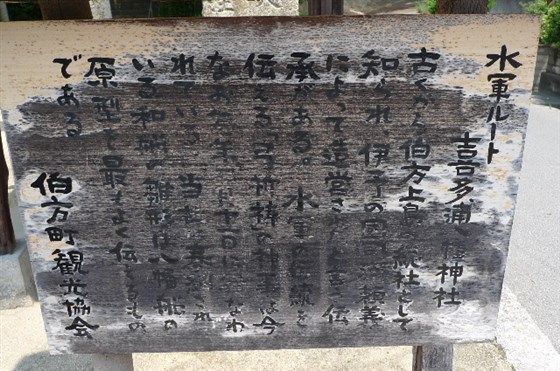 水軍ルート
喜多浦八幡神社
古くから伯方上島の総社として
知られ、伊予の国司源頼義
によって造営されたと言う伝
承がある。水軍の伝統を
伝える「弓祈祷」の神事は今
なお
れている。当社に奉納され
いる和船の雛形は八幡船の
原型を最もよく伝えるもの
である
伯方町観光協会